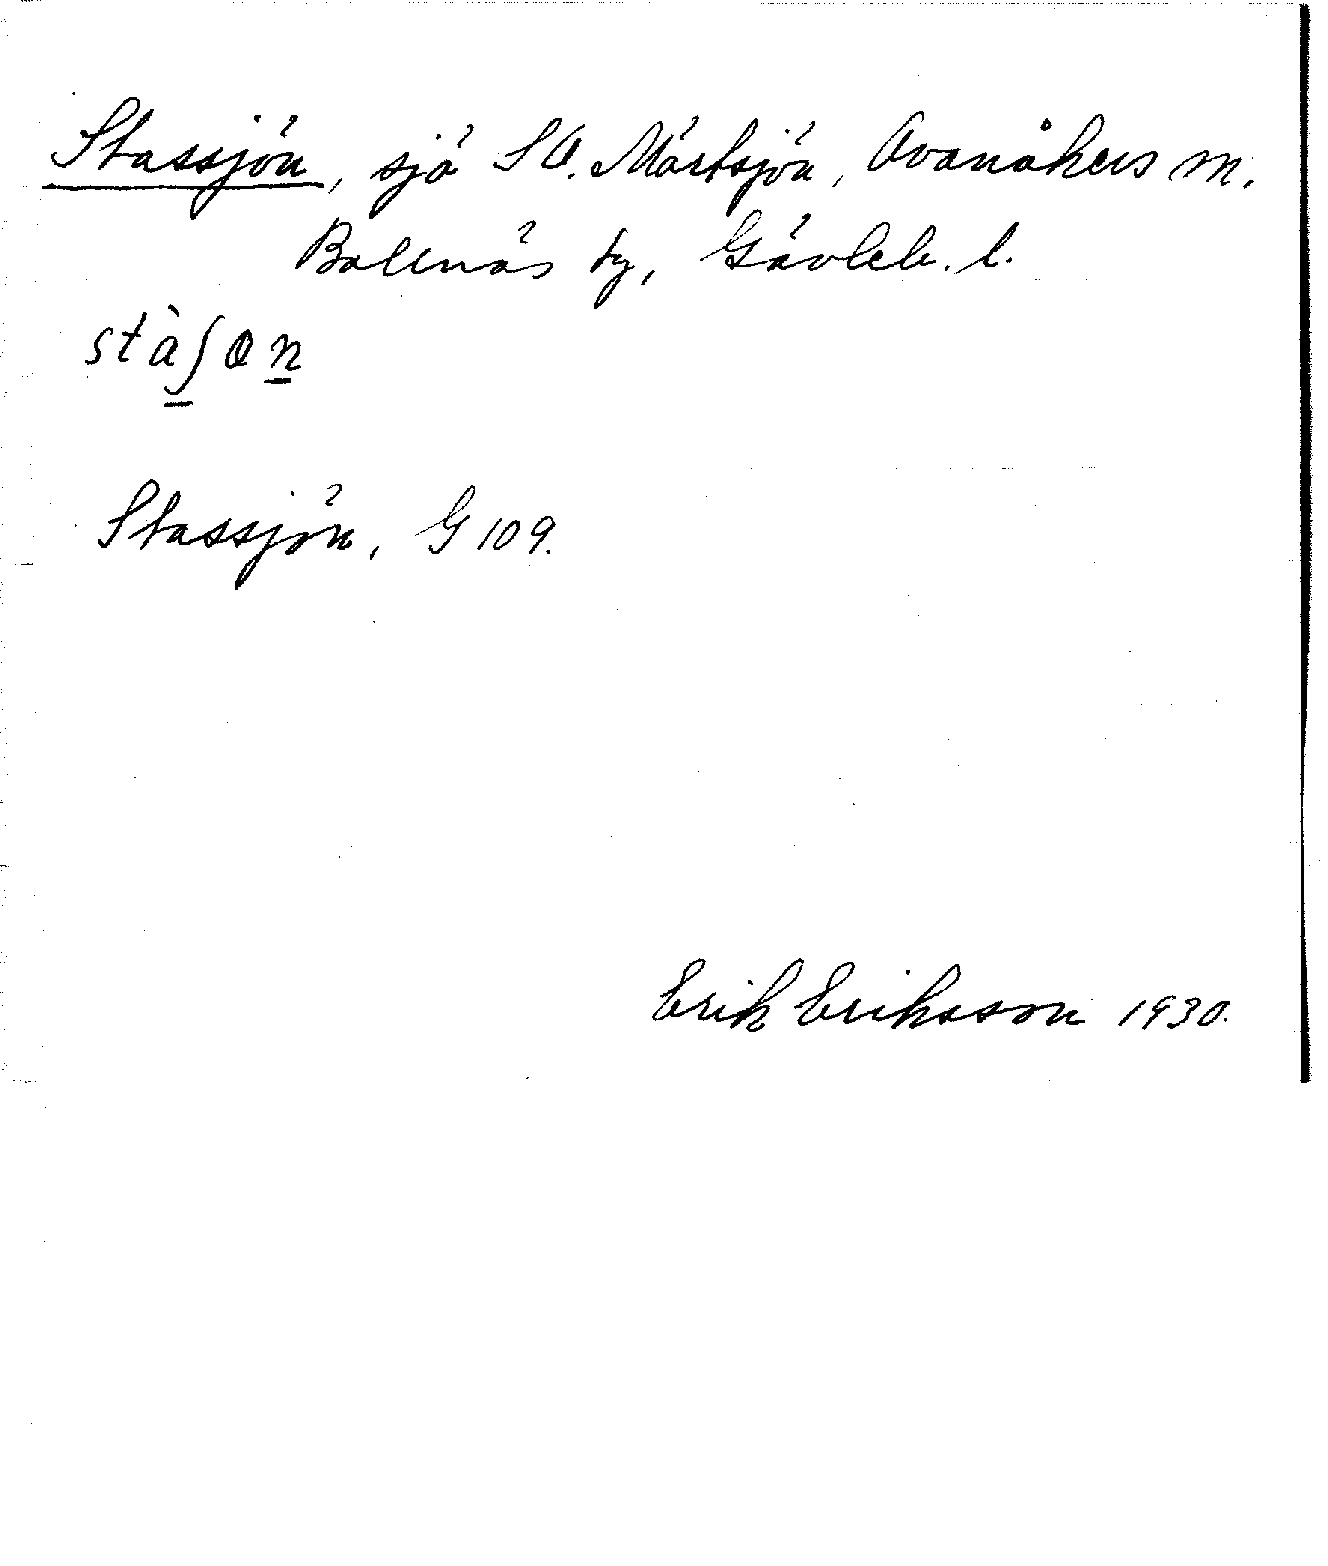 Stassjön, sjö SO. Mörtsjön, Ovanåkers sn.
Bollnäs tg, Gävleb. l.
stàʃøn
Stassjön, G 109.
Erik Eriksson 1930.